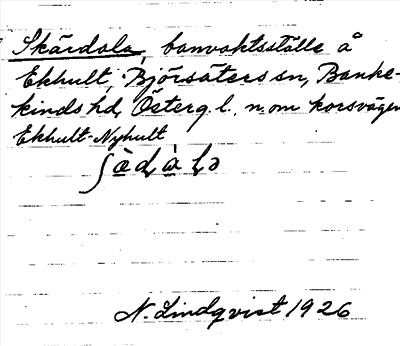 Skärdala, banvaktsställe å
Ekhult, Björsäters sn, Banke-
kinds hd, Östergl. n. om korsvägen
Ekhult-Nyhult
ʃà̱dà̱lə
N. Lindqvist 1926